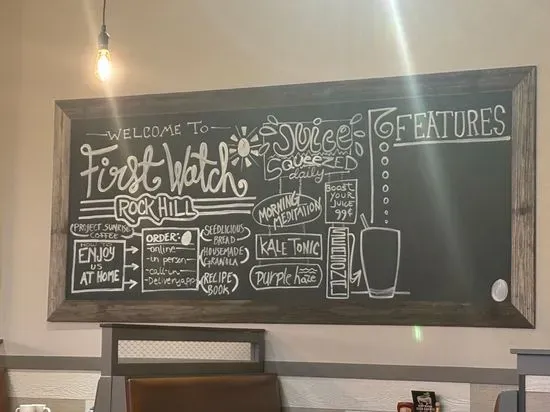 WELCOME TO
First Watch
ROCK HILL
PROJECT SUNRISE
COFFEE
HOW TO
ENJOY
US
AT HOME
ORDER:
-online-
-in person-
-call-in-
-Delivery app-
SEEDLICIOUS
BREAD
HOUSEMADE
GRANOLA
RECIPE
BOOK
JUICE
SQUEEZED
daily
MORNING
MEDITATION
KALE TONIC
Purple haze
BOOST
YOUR
JUICE
99¢
FEATURES